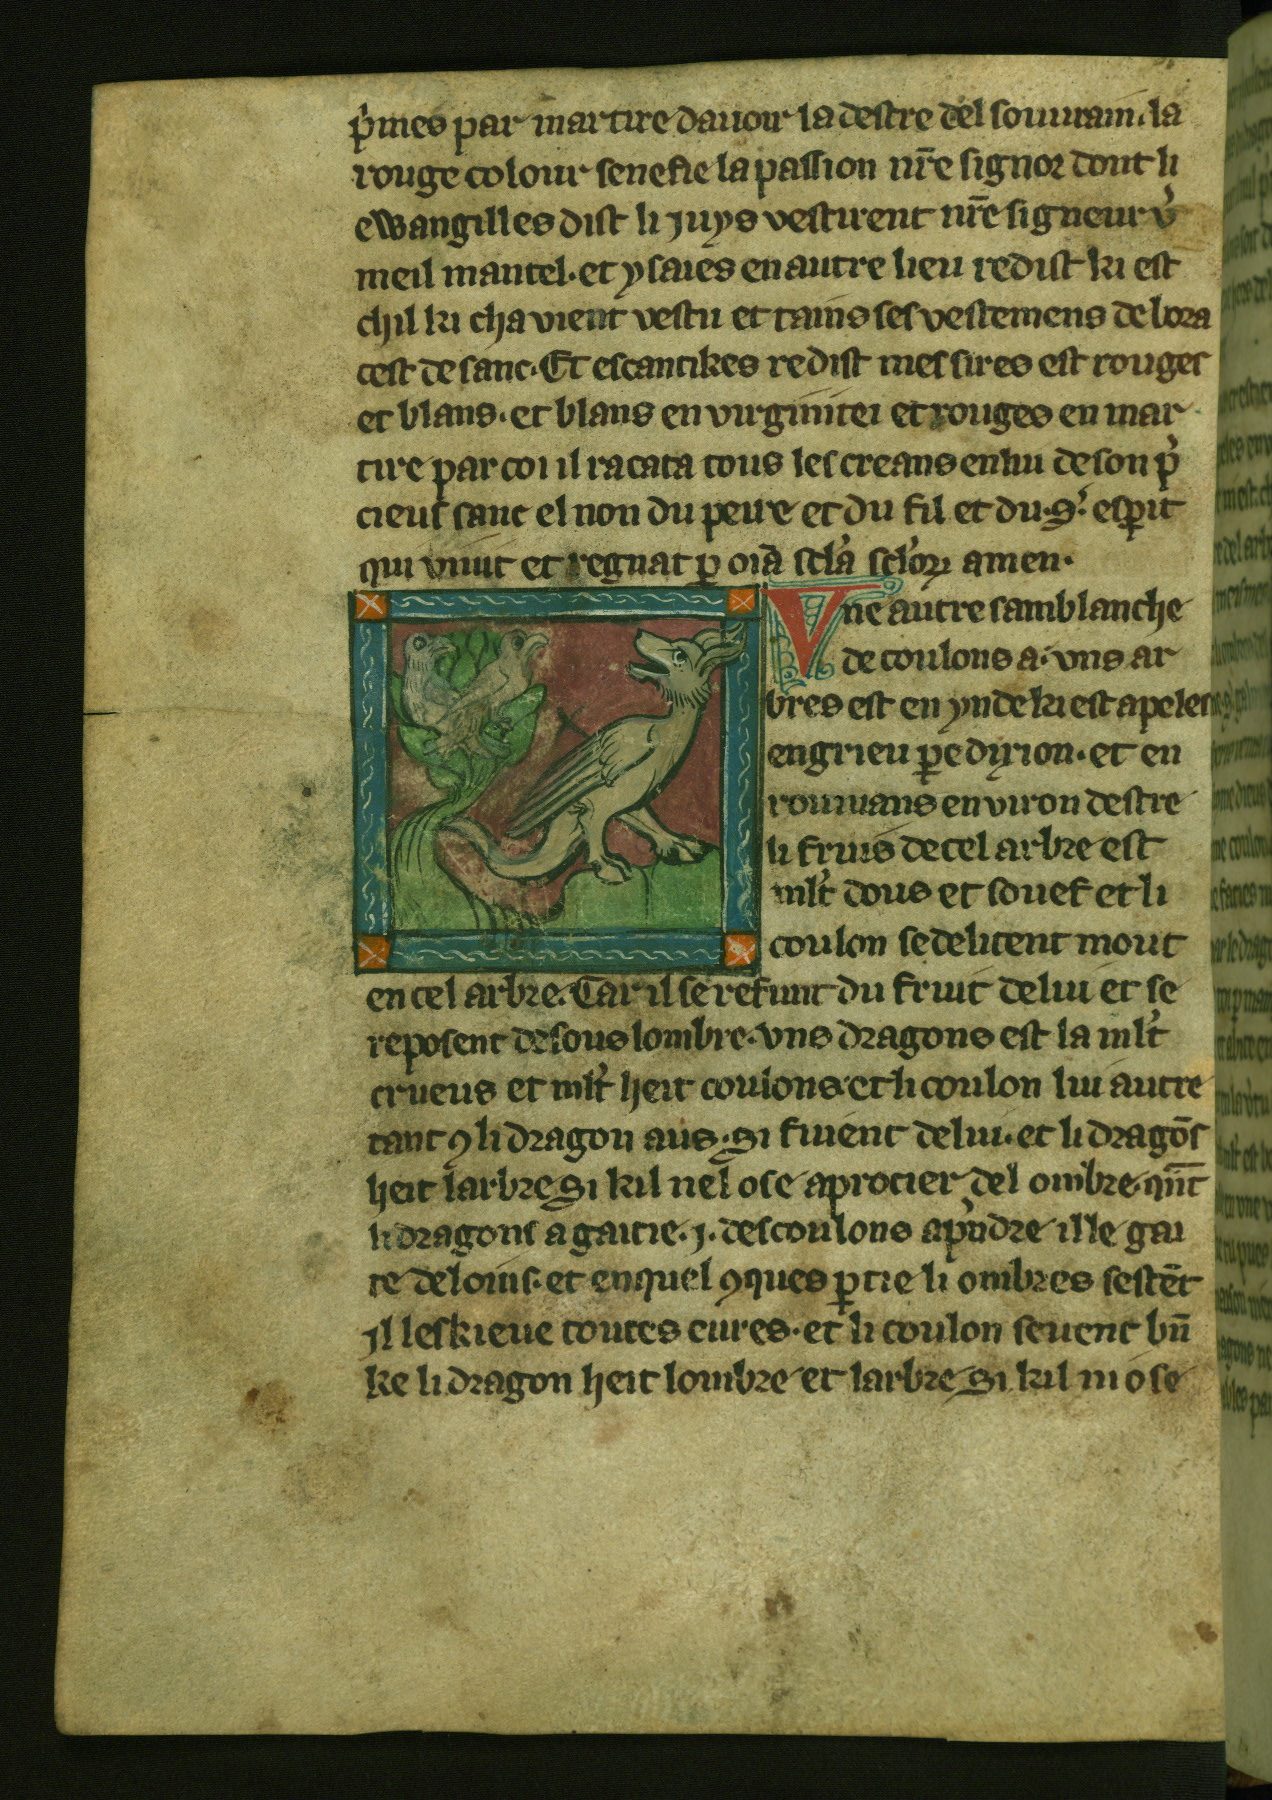 p̾mes par martire dauoir la destre del souurain. la
rouge colour senefie la passion nr̄e signor dont li
ewangilles dist li juys vestirent nr̄e signeur v̾
meil mantel. et ysaies en autre lieu redist ki est
chil ki cha vient vestu et tains ses vestemens de bora
cest de sanc. Et es cantikes redist mes sires est rouges
et blans. et blans en virginitei et rouges en mar
tire par coi il racata tous les creans en lui de son p̾
cieus sanc el non du peire et du fil et du .s̾. esꝑit
qui viuit et regnat ꝑ oīa sc̄la sc̄loꝝ amen.
Vne autre samblanche
de coulons a. vns ar
bres est en ynde ki est apeles
en grieu ꝑedixion. et en
roumans environ destre
li fruis de cel arbre est
ml̾t dous et souef et li
coulon se delitent mout
en cel arbre. Car il se refunt du fruit de lui et se
reposent desous lombre. vns dragons est la ml̾t
crueus et ml̾t heit coulons. et li coulon lui autre
tant ꝯ li dragon aus. si fuient de lui. et li dragōs
heit larbre si kil nel ose aprocier del ombre. qn̄t
li dragons a gaitie .j. des coulons a p̾ndre il le gai
te de loins. et en quel ꝯques ꝑtie li ombres sestēt
il leskieue toutes eures. et li coulon seuent bn̄
ke li dragon heit lombre et larbre si kil ni ose